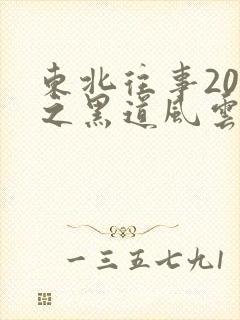 東北往事20
之黑道風雲
一三五七九1